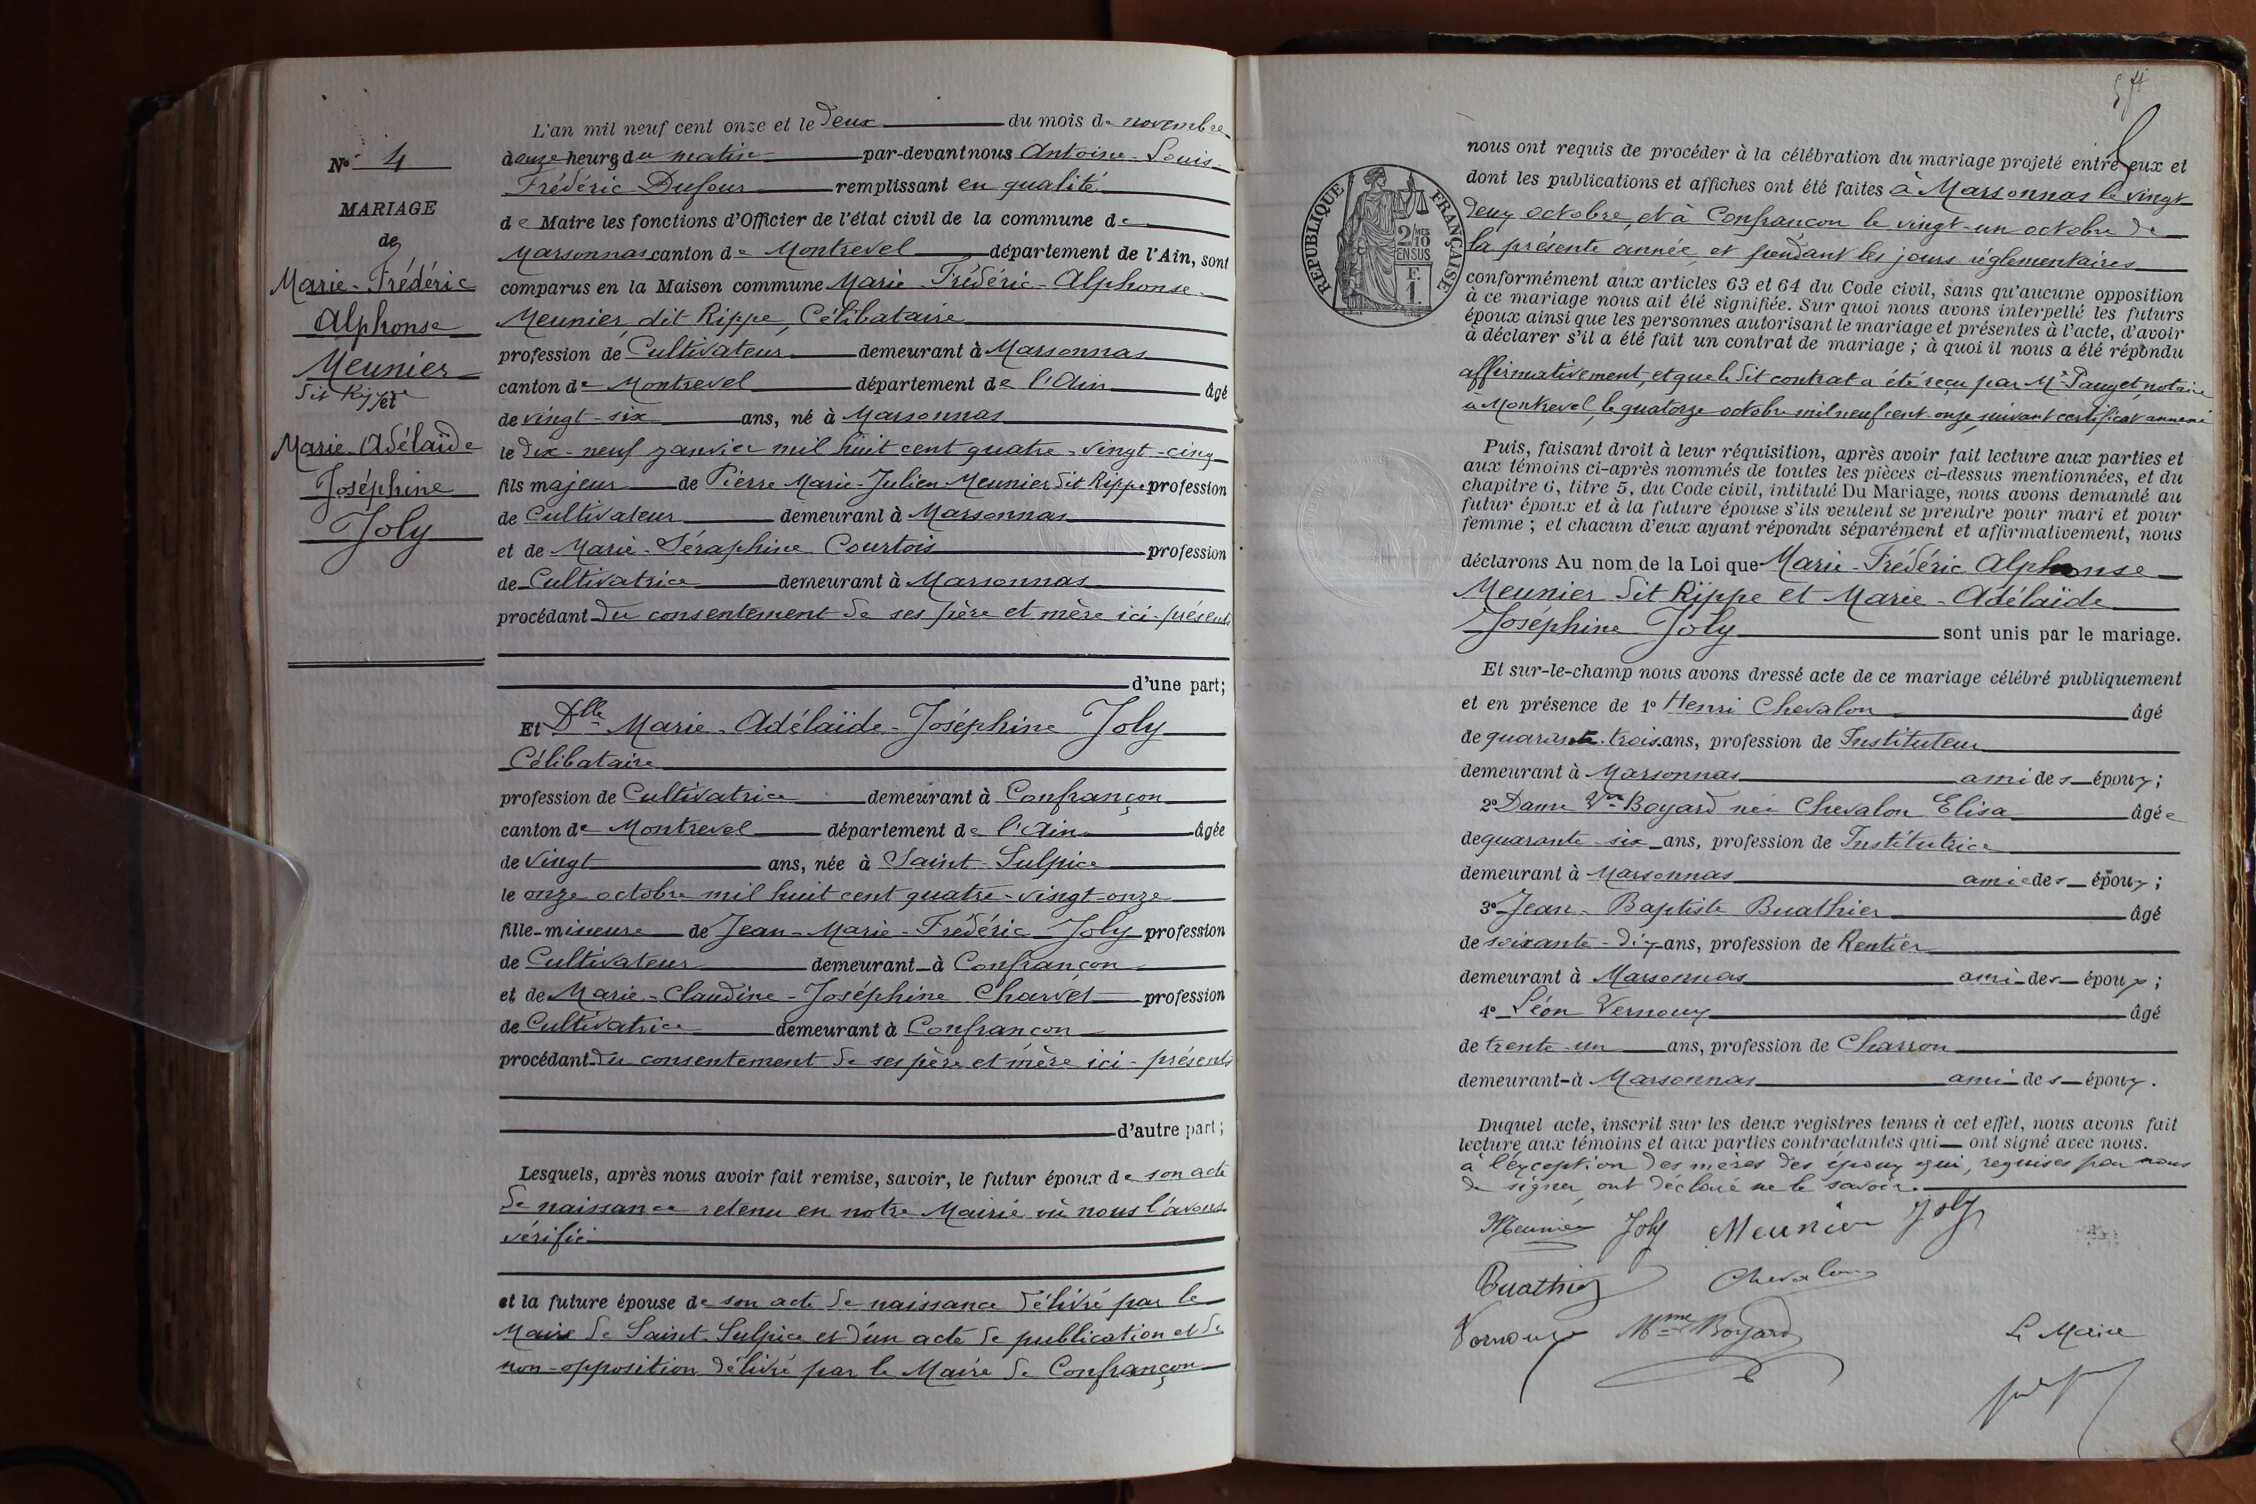 N° 4
MARIAGE
de
Marie-Frédéric
Alphonse
Meunier
dit Rippe
et
Marie-Adélaïde
Joséphine
Joly
L'an mil neuf cent onze et le deux du mois de novembre
à onze heures du matin par-devant nous Antoine-Louis-
Frédéric Dufour remplissant en qualité
de Maire les fonctions d'Officier de l'état civil de la commune de
Marsonnas canton de Montrevel département de l'Ain, sont
comparus en la Maison commune Marie-Frédéric-Alphonse
Meunier, dit Rippe, Célibataire
profession de Cultivateur demeurant à Marsonnas
canton de Montrevel département de l'Ain âgé
de vingt-six ans, né à Marsonnas
le dix-neuf janvier mil huit cent quatre-vingt-cinq
fils majeur de Pierre Marie-Julien Meunier dit Rippe profession
de Cultivateur demeurant à Marsonnas
et de Marie-Séraphine Courtois profession
de Cultivatrice demeurant à Marsonnas
procédant du consentement de ses père et mère ici-présents
d'une part;
Et Dlle Marie-Adélaïde-Joséphine Joly
Célibataire
profession de Cultivatrice demeurant à Confrançon
canton de Montrevel département de l'Ain âgée
de vingt ans, née à Saint-Sulpice
le onze octobre mil huit cent quatre-vingt-onze
fille mineure de Jean-Marie-Frédéric Joly profession
de Cultivateur demeurant à Confrançon
et de Marie-Claudine-Joséphine Charvet profession
de Cultivatrice demeurant à Confrançon
procédant du consentement de ses père et mère ici-présents
d'autre part;
Lesquels, après nous avoir fait remise, savoir, le futur époux de son acte
de naissance retenu en notre Mairie où nous l'avons
vérifié
et la future épouse de son acte de naissance délivré par le
Maire de Saint-Sulpice et d'un acte de publication et de
non-opposition délivré par le Maire de Confrançon
REPUBLIQUE FRANÇAISE
2/10 MES
EN SUS
F.
1.
nous ont requis de procéder à la célébration du mariage projeté entre eux et
dont les publications et affiches ont été faites à Marsonnas le vingt
deux octobre, et à Confrançon le vingt-un octobre de
la présente année, et pendant les jours réglementaires
conformément aux articles 63 et 64 du Code civil, sans qu'aucune opposition
à ce mariage nous ait été signifiée. Sur quoi nous avons interpellé les futurs
époux ainsi que les personnes autorisant le mariage et présentes à l'acte, d'avoir
à déclarer s'il a été fait un contrat de mariage ; à quoi il nous a été répondu
affirmativement, et que le dit contrat a été reçu par Me Pauget, notaire
à Montrevel, le quatorze octobre mil neuf cent onze, suivant certificat annexé
Puis, faisant droit à leur réquisition, après avoir fait lecture aux parties et
aux témoins ci-après nommés de toutes les pièces ci-dessus mentionnées, et du
chapitre 6, titre 5, du Code civil, intitulé Du Mariage, nous avons demandé au
futur époux et à la future épouse s'ils veulent se prendre pour mari et pour
femme ; et chacun d'eux ayant répondu séparément et affirmativement, nous
déclarons Au nom de la Loi que Marie-Frédéric Alphonse
Meunier dit Rippe et Marie-Adélaïde
Joséphine Joly sont unis par le mariage.
Et sur-le-champ nous avons dressé acte de ce mariage célébré publiquement
et en présence de 1° Henri Chevalon âgé
de quarante-trois ans, profession de Instituteur
demeurant à Marsonnas ami des époux ;
2° Dame Vve Boyard née Chevalon Elisa âgée
de quarante-six ans, profession de Institutrice
demeurant à Marsonnas amie des époux ;
3° Jean-Baptiste Buathier âgé
de soixante-dix ans, profession de Rentier
demeurant à Marsonnas ami des époux ;
4° Léon Vernoux âgé
de trente-un ans, profession de Charron
demeurant à Marsonnas ami des époux.
Duquel acte, inscrit sur les deux registres tenus à cet effet, nous avons fait
lecture aux témoins et aux parties contractantes qui ont signé avec nous.
à l'exception des mères des époux qui, requises par nous
de signer, ont déclaré ne le savoir.
Meunier Joly Meunier Joly
Buathier Chevalon
Vernoux Mme Boyard Le Maire